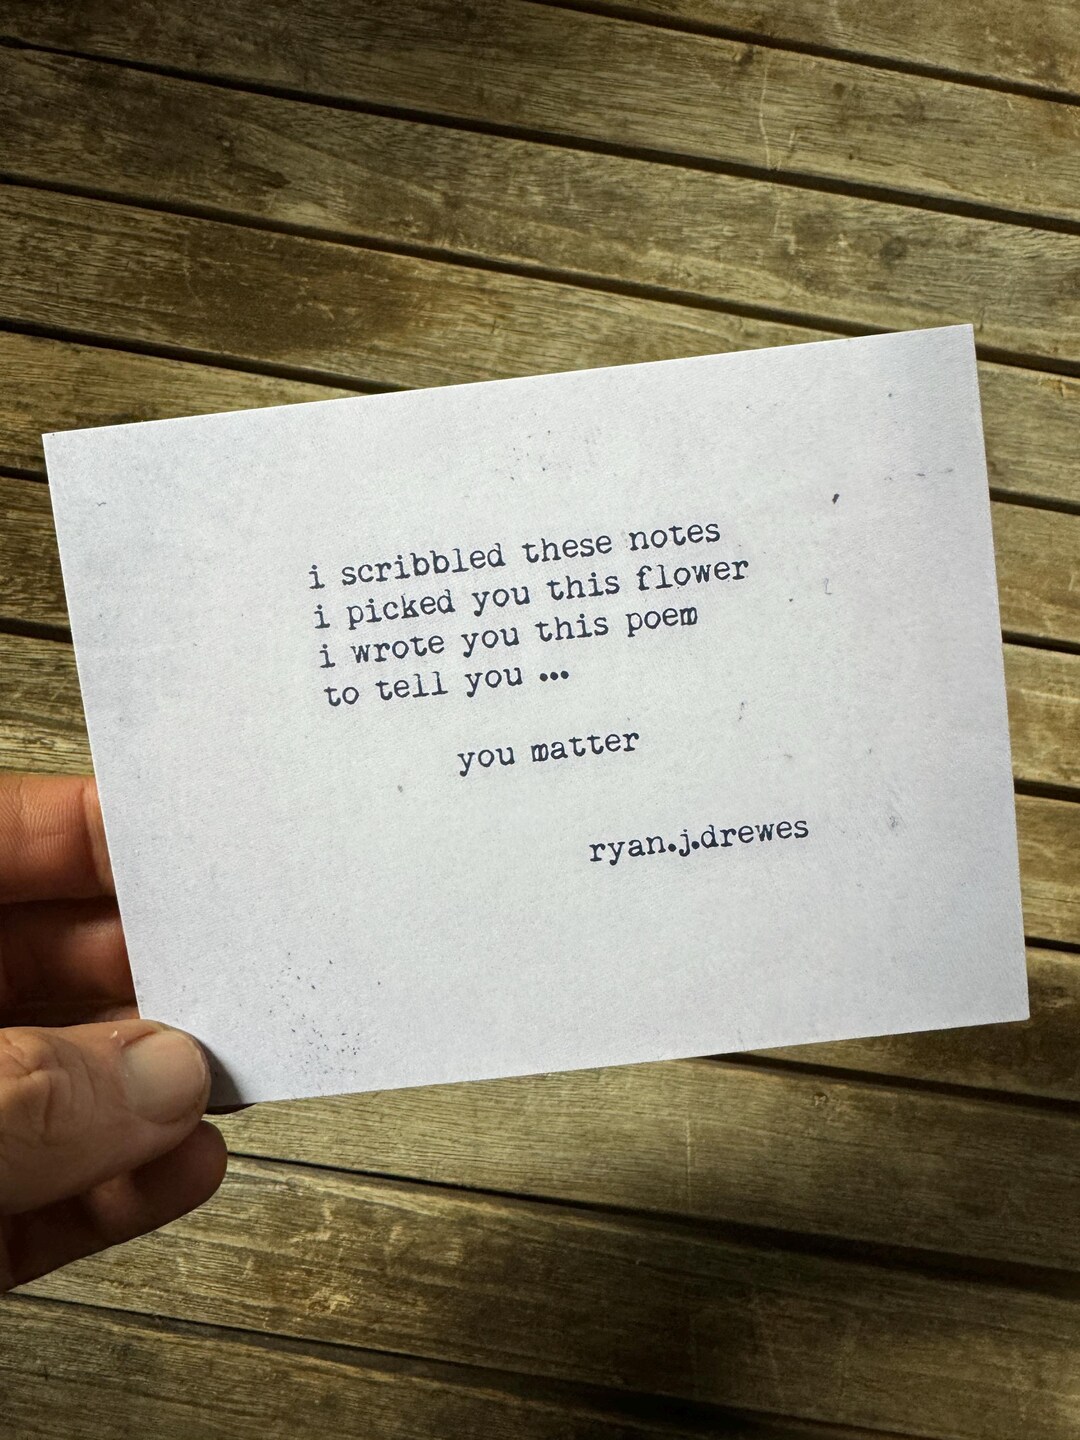 i scribbled these notes
i picked you this flower
i wrote you this poem
to tell you •••
you matter
ryan.j.drewes